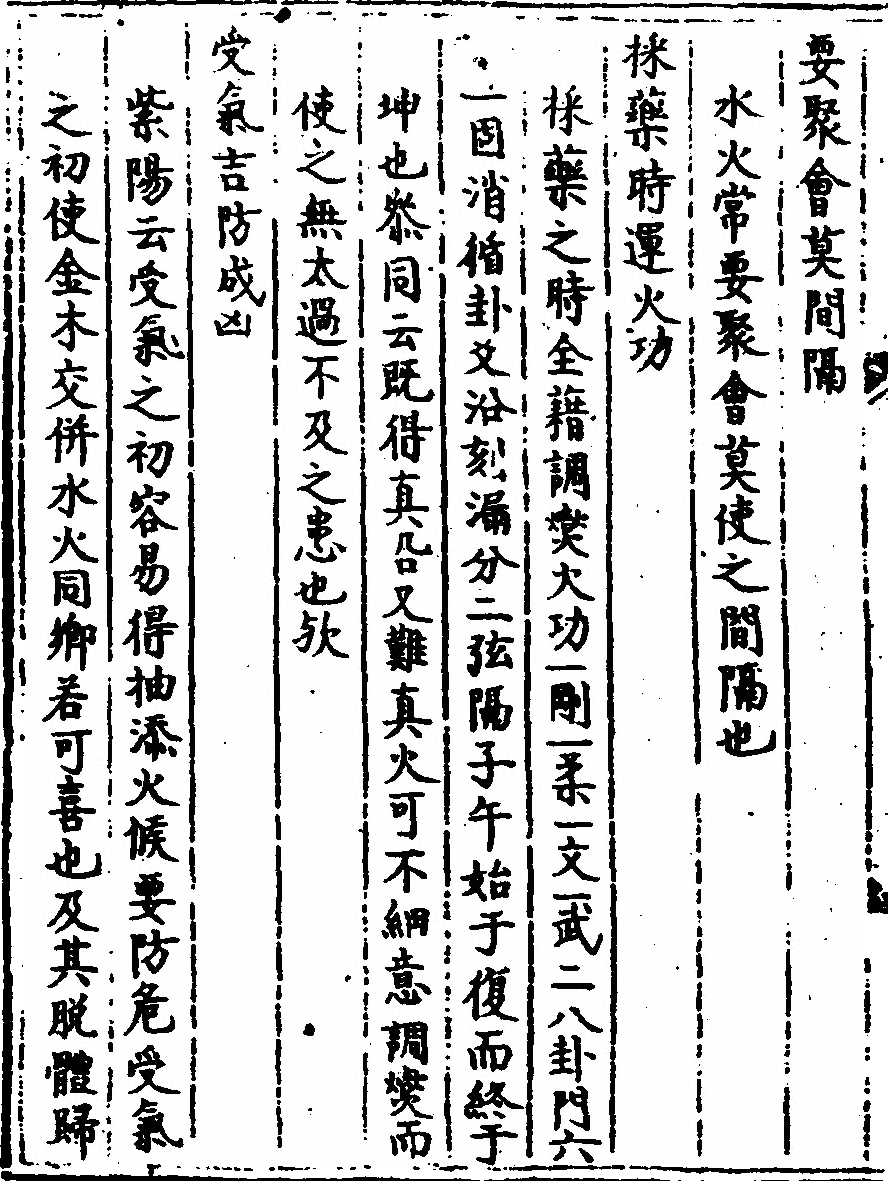 要聚會莫間隔
水火常要聚會莫使之間隔也
採藥時運火功
採藥之時全藉調燮火功一剛一柔一文一武二八卦門六
一固消循卦爻沿刻漏分二弦隔子午始于復而終于
坤也叅同云既得真鉛又難真火可不細意調燮而
使之無太過不及之患也欤
受氣吉防成凶
紫陽云受氣之初容易得抽添火候要防危受氣
之初使金木交併水火同鄉若可喜也及其脫體歸